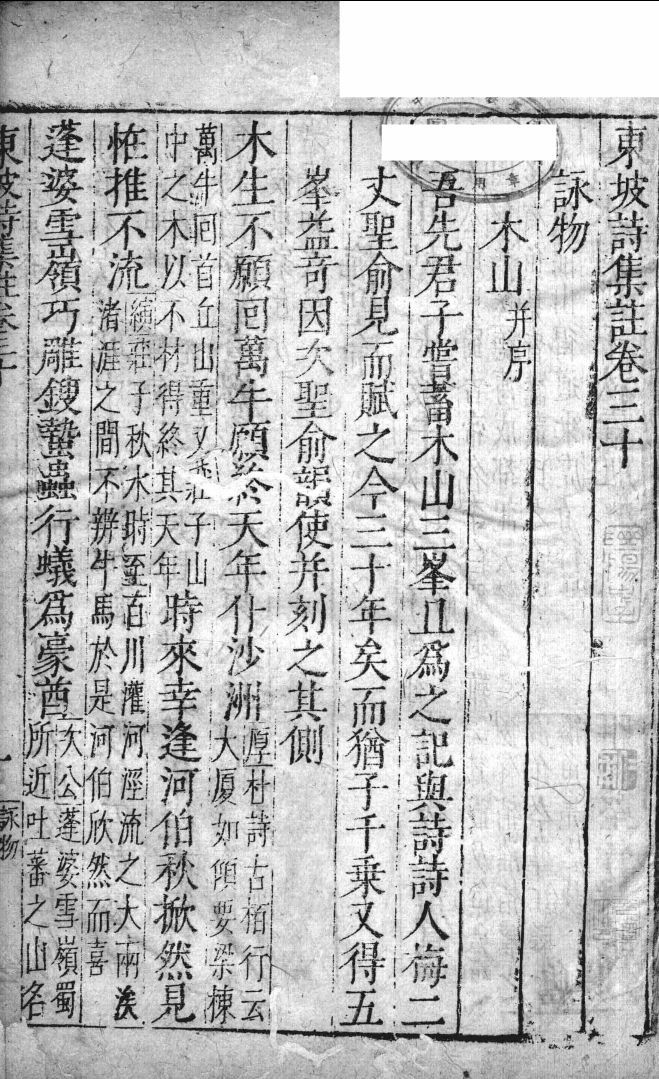 東坡詩集註卷三十
詠物
木山并序
吾先君子嘗蓄木山三峯且爲之記與詩詩人梅二
丈聖俞見而賦之今三十年矣而猶子千乗又得五
峯益竒因次聖俞韻使并刻之其側
木生不願回萬牛願終天年仆沙洲厚杜詩古栢行云大厦如傾要梁棟
萬牛回首丘山重又莊子山中之木以不材得終其天年時來幸逢河伯秋掀然見
恠推不流縯莊子秋水時至百川灌河涇流之大兩涘渚涯之間不辨牛馬於是河伯欣然而喜
蓬婆雪嶺巧雕鎪蟄蟲行蟻爲豪酋次公蓬婆雪嶺蜀所近吐蕃之山名
東坡詩集註卷三十
一
詠物